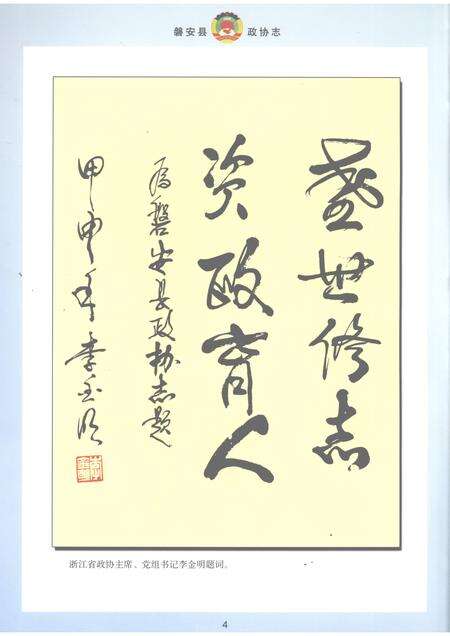 磐安县 政协志
盛世修志
资政育人
为磐安县政协志题
甲申年 李金明
浙江省政协主席、党组书记李金明题词。
4